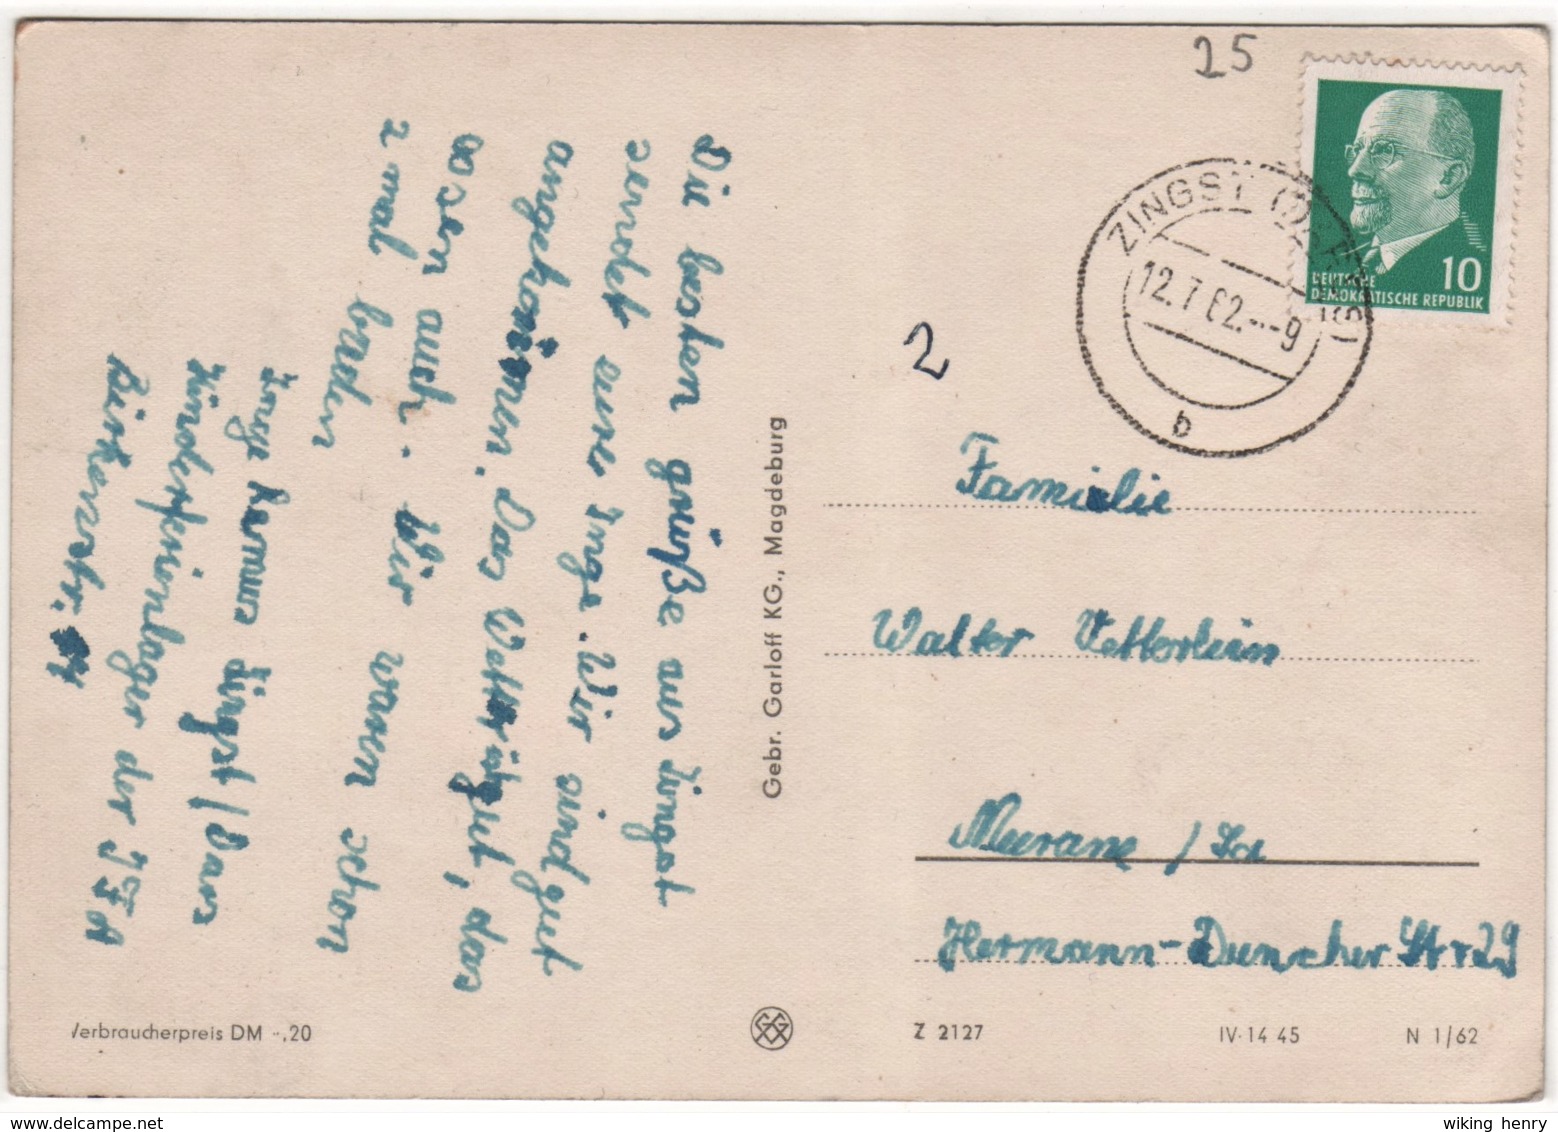 25
DEUTSCHE
DEMOKRATISCHE REPUBLIK
10
ZINGST (DARSS)
12.7.62.--9
b
2
Die besten grüße aus Zingst
sendet eure Inge. Wir sind gut
angekommen. Das Wetter ist gut, das
Essen auch. Wir waren schon
2 mal baden
Zingst / Dars
Kinderferienlager der IFA
Birkenstr.
Gebr. Garloff KG., Magdeburg
Familie
Walter Vetterlein
Meerane / Sa
Hermann-Duncker Str 29
Verbraucherpreis DM -,20
Z 2127
IV-14 45
N 1/62
wiking henry